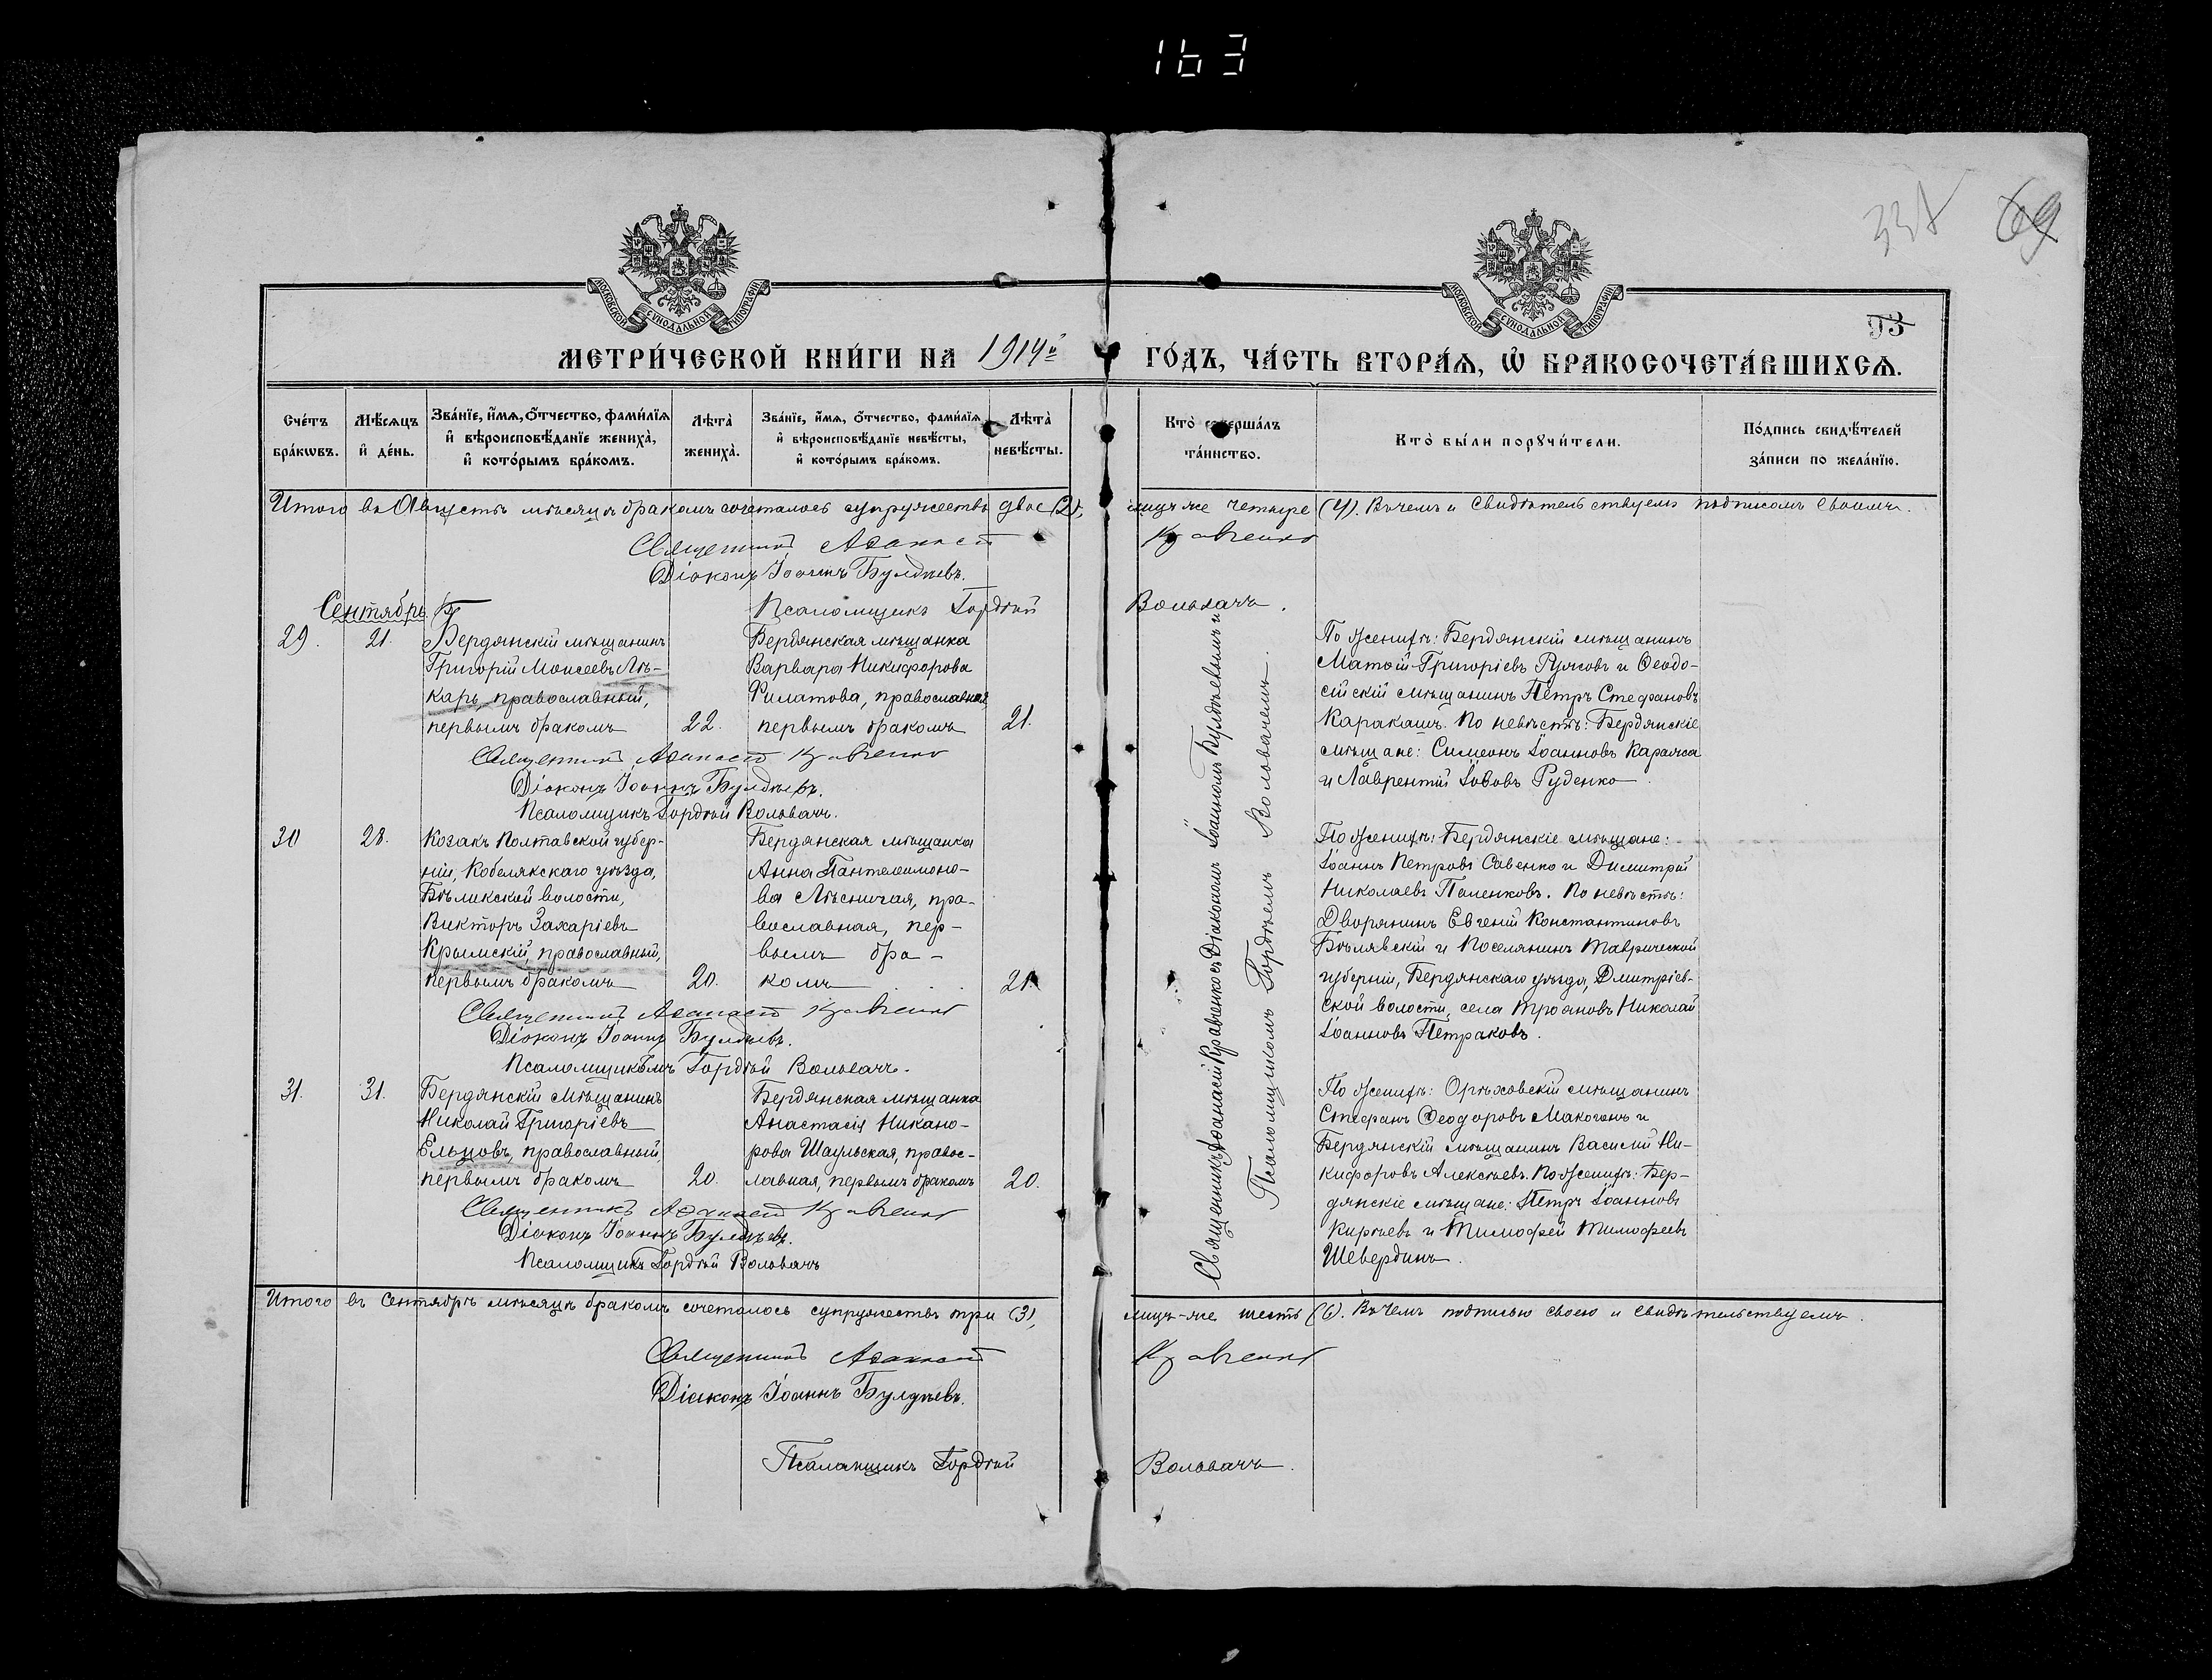 163
337 69
МОСКОВСКОЙ СѴНОДАЛЬНОЙ ТИПОГРАФІИ
МОСКОВСКОЙ СѴНОДАЛЬНОЙ ТИПОГРАФІИ
93
МЕТРИ́ЧЕСКОЙ КНИ́ГИ НА 1914й ГО́ДЪ, ЧА́СТЬ ВТОРА́Ѧ, Ѽ БРАКОСОЧЕТА́ВШИХСѦ.
Сче́тъ бра́кѡвъ.
Мѣ́сѧцъ и҆ де́нь.
Зва́нїе, и҆́мѧ, ѻ҆́тчество, фами́лїѧ и҆ вѣроисповѣ́данїе жениха̀, и҆ кото́рымъ бра́комъ.
Лѣта̀ жениха̀.
Зва́нїе, и҆́мѧ, ѻ҆́тчество, фами́лїѧ и҆ вѣроисповѣ́данїе невѣ́сты, и҆ кото́рымъ бра́комъ.
Лѣта̀ невѣ́сты.
Кто̀ соверша́лъ та́инство.
Кто̀ бы́ли порꙋчи́тели.
По́дпись свидѣ́телей за́писи по жела́нїю.
Итого въ Августѣ мѣсяцѣ бракомъ сочеталось супружествъ двое (2), лицъ же четыре (4). Въ чемъ и свидѣтельствуемъ подписомъ своимъ.
Священникъ Аѳанасій Кравченко
Діаконъ Іоаннъ Булдѣевъ.
Псаломщикъ Гордѣй Воловачъ.
Сентябрь
29. 21.
Бердянскій мѣщанинъ
Григорій Моисеевъ Лѣ-
карь, православный,
первымъ бракомъ 22.
Бердянская мѣщанка
Варвара Никифорова
Филатова, православная,
первымъ бракомъ 21.
По женихѣ: Бердянскій мѣщанинъ
Матѳій Григоріевъ Ружовъ и Ѳеодо-
сійскій мѣщанинъ Петръ Стефановъ
Каракашъ. По невѣстѣ: Бердянскіе
мѣщане: Симеонъ Іоанновъ Каражса
и Лаврентій Іововъ Руденко.
Священникъ Аѳанасій Кравченко
Діаконъ Іоаннъ Булдѣевъ.
Псаломщикъ Гордѣй Воловачъ.
30 28.
Козакъ Полтавской губер-
ніи, Кобелякскаго уѣзда,
Бѣликской волости,
Викторъ Захаріевъ
Крымскій, православный,
первымъ бракомъ 20.
Бердянская мѣщанка
Анна Пантелеимоно-
ва Лѣсничая, пра-
вославная, пер-
вымъ бра-
комъ 21.
По женихѣ: Бердянскіе мѣщане:
Іоаннъ Петровъ Савенко и Димитрій
Николаевъ Паленковъ. По невѣстѣ:
Дворянинъ Евгеній Константиновъ
Бѣлявскій и Поселянинъ Таврической
губерніи, Бердянскаго уѣзда, Дмитріев-
ской волости, села Трояновъ Николай
Іоанновъ Петраковъ.
Священникъ Аѳанасій Кравченко
Діаконъ Іоаннъ Булдѣевъ.
Псаломщикъ Гордѣй Воловачъ.
31. 31.
Бердянскій мѣщанинъ
Николай Григоріевъ
Ельцовъ, православный,
первымъ бракомъ 20.
Бердянская мѣщанка
Анастасія Никано-
рова Шаульская, правос-
лавная, первымъ бракомъ 20.
По женихѣ: Орѣховскій мѣщанинъ
Стефанъ Ѳеодоровъ Макогонъ и
Бердянскій мѣщанинъ Василій Ни-
кифоровъ Алексѣевъ. По женихѣ: Бер-
дянскіе мѣщане: Петръ Іоанновъ
Кирѣевъ и Тимофей Тимофеевъ
Шевердинъ.
Священникъ Аѳанасій Кравченко
Діаконъ Іоаннъ Булдѣевъ.
Псаломщикъ Гордѣй Воловачъ
Священникъ Аѳанасій Кравченко съ Діакономъ Іоанномъ Булдѣевымъ и
Псаломщикомъ Гордѣемъ Воловачемъ.
Итого въ Сентябрѣ мѣсяцѣ бракомъ сочеталось супружествъ три (3), лицъ-же шесть (6). Въ чемъ подписью своею и свидѣтельствуемъ.
Священникъ Аѳанасій Кравченко
Діаконъ Іоаннъ Булдѣевъ.
Псаломщикъ Гордѣй Воловачъ.